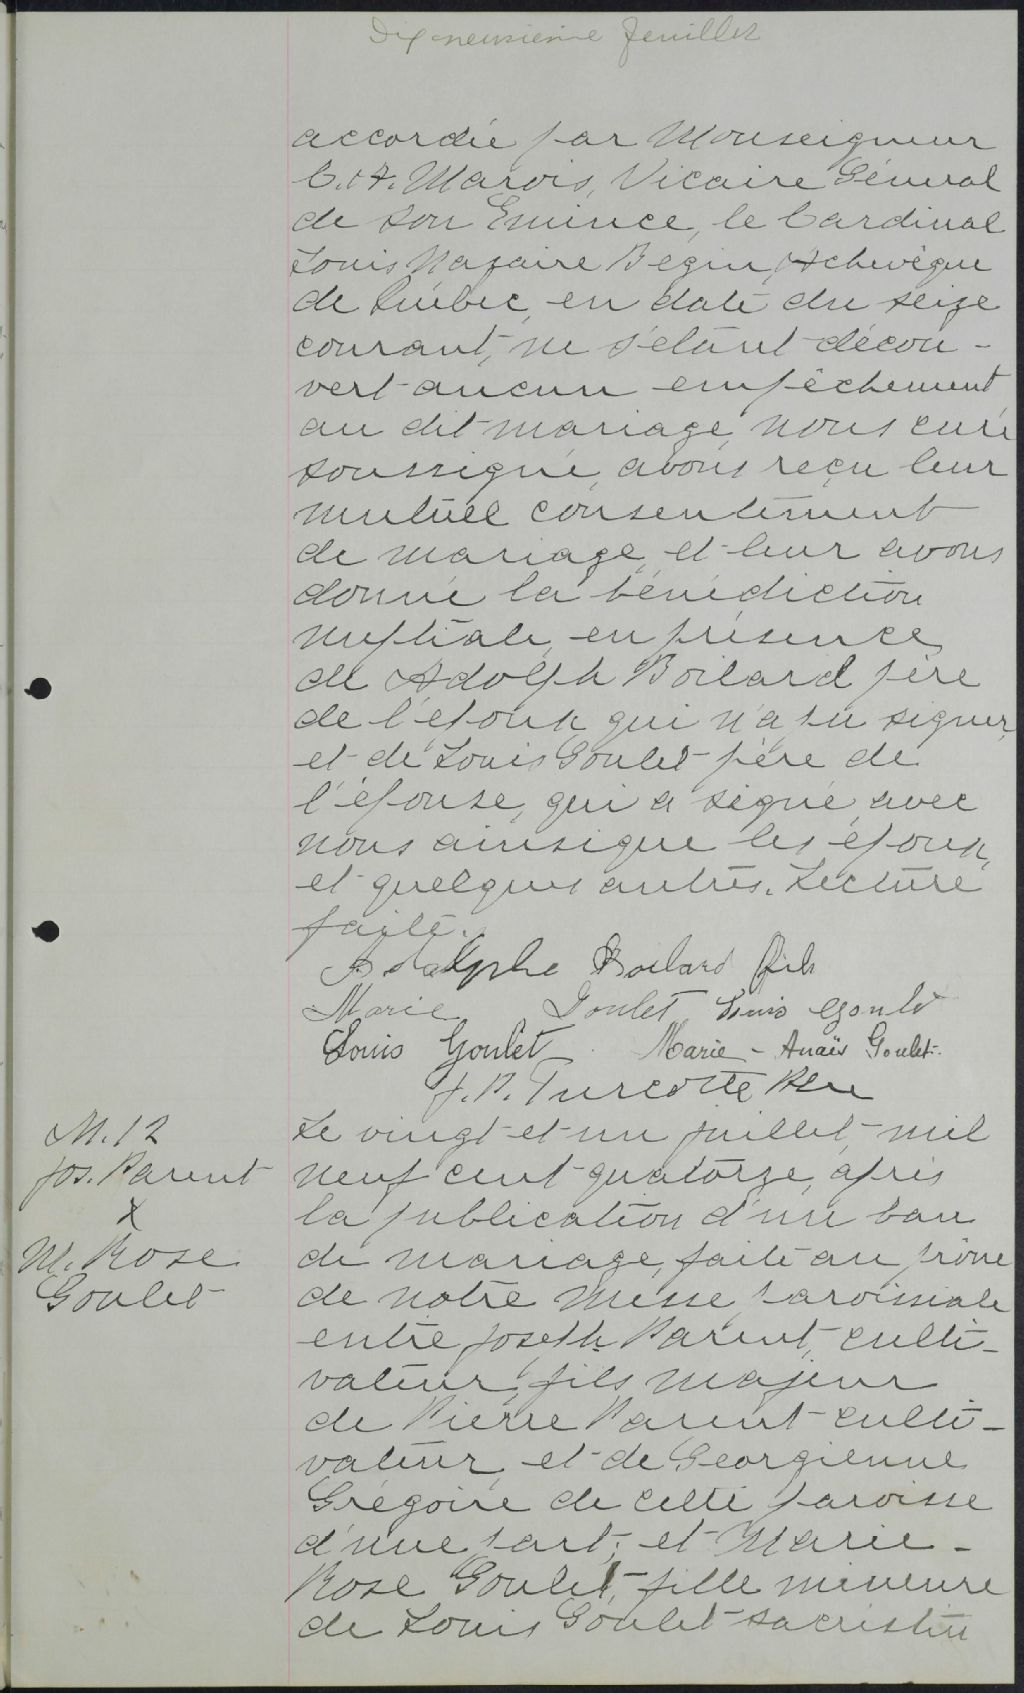 Dix-neuvième feuillet
accordée par Monseigneur
C. A. Marois, Vicaire Général
de Son Emince, le Cardinal
Louis Nazaire Begin, Achevêque
de Québec, en date du seize
courant, ne s'étant décou-
vert aucun empêchement
au dit mariage, nous curé
soussigné, avons reçu leur
mutuel consentement
de mariage et leur avons
donné la bénédiction
nuptiale, en présence
de Adolph Boilard père
de l'époux, qui n'a pu signer,
et de Louis Goulet père de
l'épouse, qui a signé, avec
nous ainsique les époux,
et quelques autres. Lecture
faite.
Adolphe Boilard fils
Marie Goulet Louis Goulet
Louis Goulet Marie-Anaïs Goulet.
J. P. Turcotte Ptre
M. 12
Jos. Parent
X
M. Rose
Goulet
Le vingt-et-un juillet, mil
neuf cent quatorze, après
la publication d'un ban
de mariage, faite au prône
de notre messe paroissiale
entre Joseph Parent, culti-
vateur, fils majeur
de Pierre Parent culti-
vateur, et de Georgienne
Grégoire de cette paroisse
d'une part; et Marie-
Rose Goulet, fille mineure
de Louis Goulet sacristin